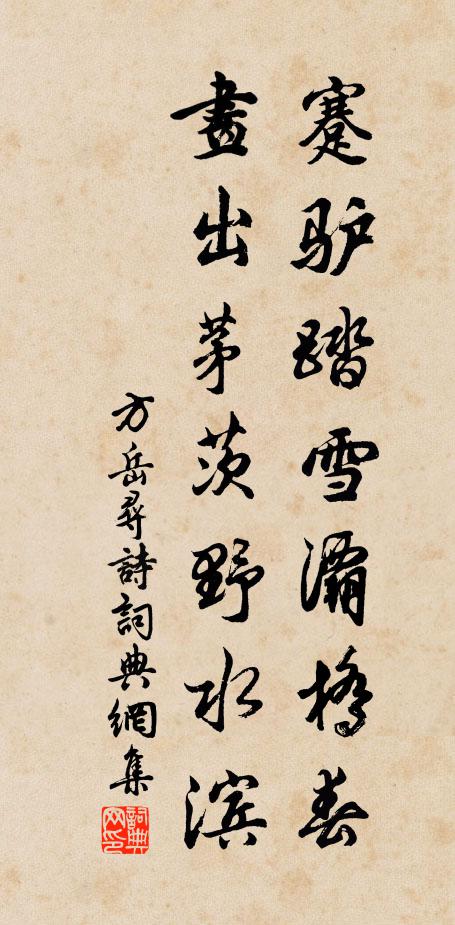 蹇驴踏雪灞橋春
畫出茅茨野水滨
方岳尋詩詞典網集
詞典
网印